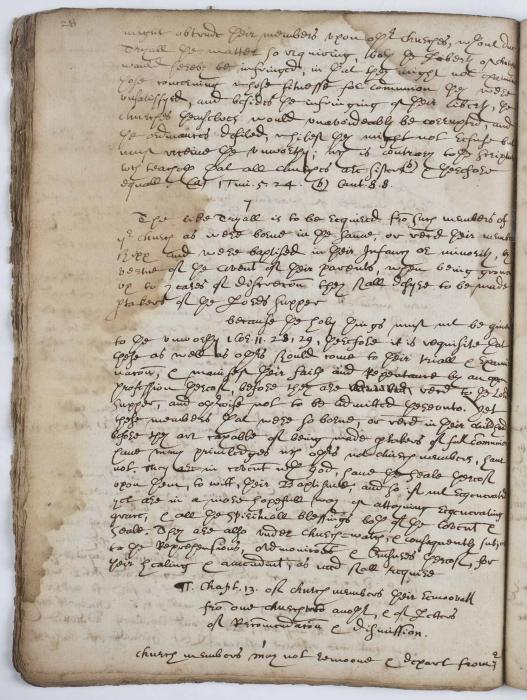 28
might obtrude their members upon other churches, without due
tryall the matter so requiring, both the liberty of churches
would hereby be infringed, in that they might not examine
those concerning whose fitnesse for communion they were
unsatisfyed, and besides the infringing of their liberty, the
churches themselves would unavoidably be corrupted, and
the ordinances defiled, whilest they might not refuse but
must receive the unworthy; wch is contrary to the scripture
wch teacheth that all churches are sisters (b) & therefore
equall (a) 1 Tim. 5. 24. (b) Cant. 8. 8.
7
The like tryall is to be required fro such members of
ye church as were borne in the same, or recd their member
, and were baptised in their infancy or minority, by
vertue of the covent of their parents, when being grown
up to yeares of discretion they shall desire to be made
ptakers of the Lords supper
because the holy things must not be given
to the unworthy 1 Cor. 11. 28, 29, therefore it is requisite that
these as well as others should come to their triall & exami
nation, & manifest their faith and repentance by an open
profession thereof, before they are recd to the Lords
supper, and otherwise not to be admitted thereunto. yet
these members that were so borne, or recd in their childhood
before they are capable of being made ptakers of full Communion
have many priviledges wch others not church members, have
not: they are in covent wth God; have the seale thereof
upon them, to witt, their Baptisme and so if not regenerated
yet are in a more hopefull way of attayning regenerating
grace, & all the spirituall blessings both of the covent &
seale. They are also under church-watch, & consequently subject
to the Reprehensions, admonitions & Censures thereof, for
their healing & amendmt, as need shall require
¶. Chapt. 13. of church members their Remooval
fro one church to anoth, & of letters
of Recomendation & dismission.
Church members may not remoove & depart from